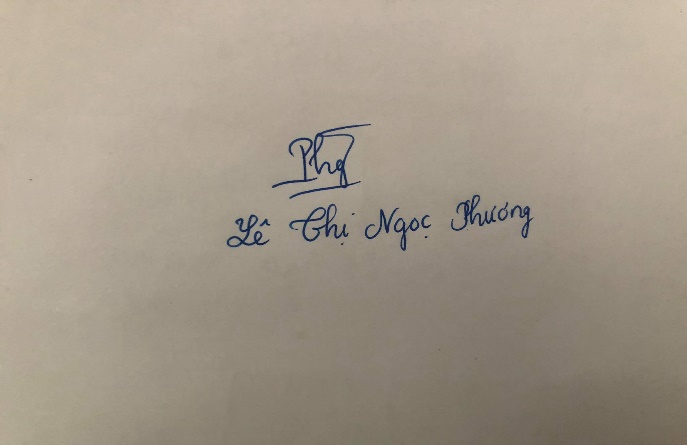 Phg
Lê Thị Ngọc Phương